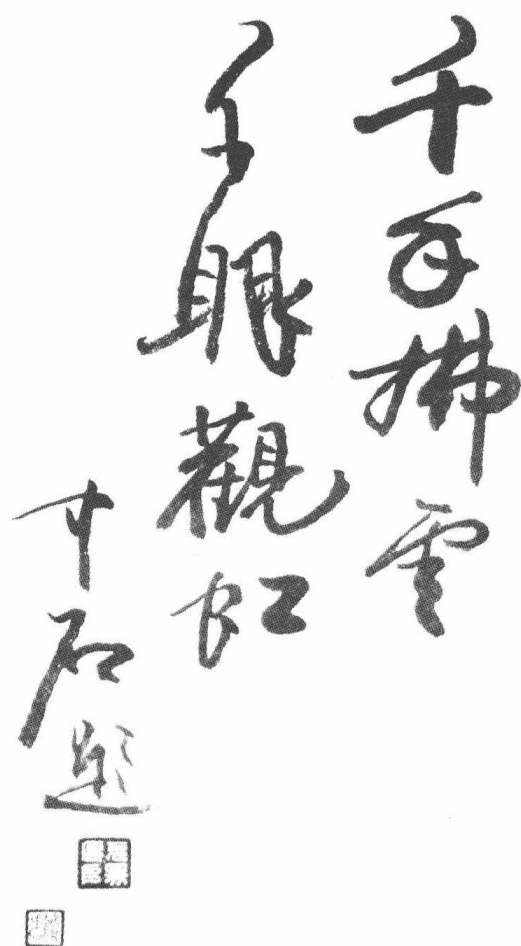 千手拂雲
千眼觀虹
石題